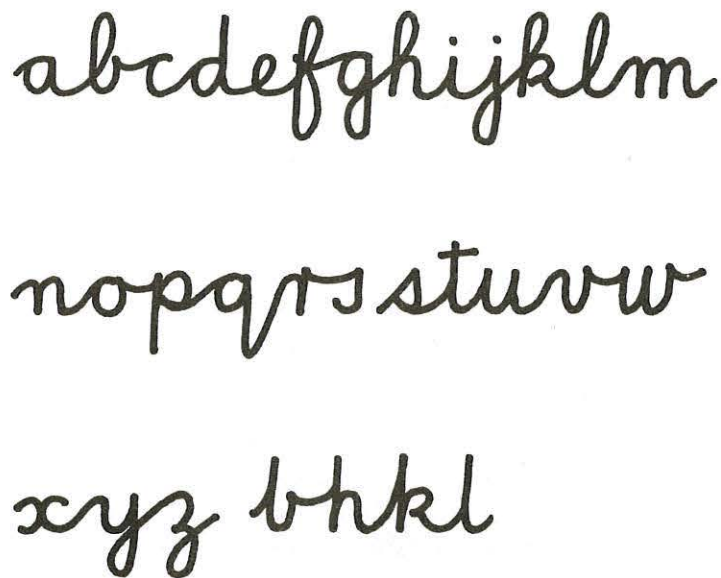 abcdefghijklm
nopqrsstuvw
xyz bhkl